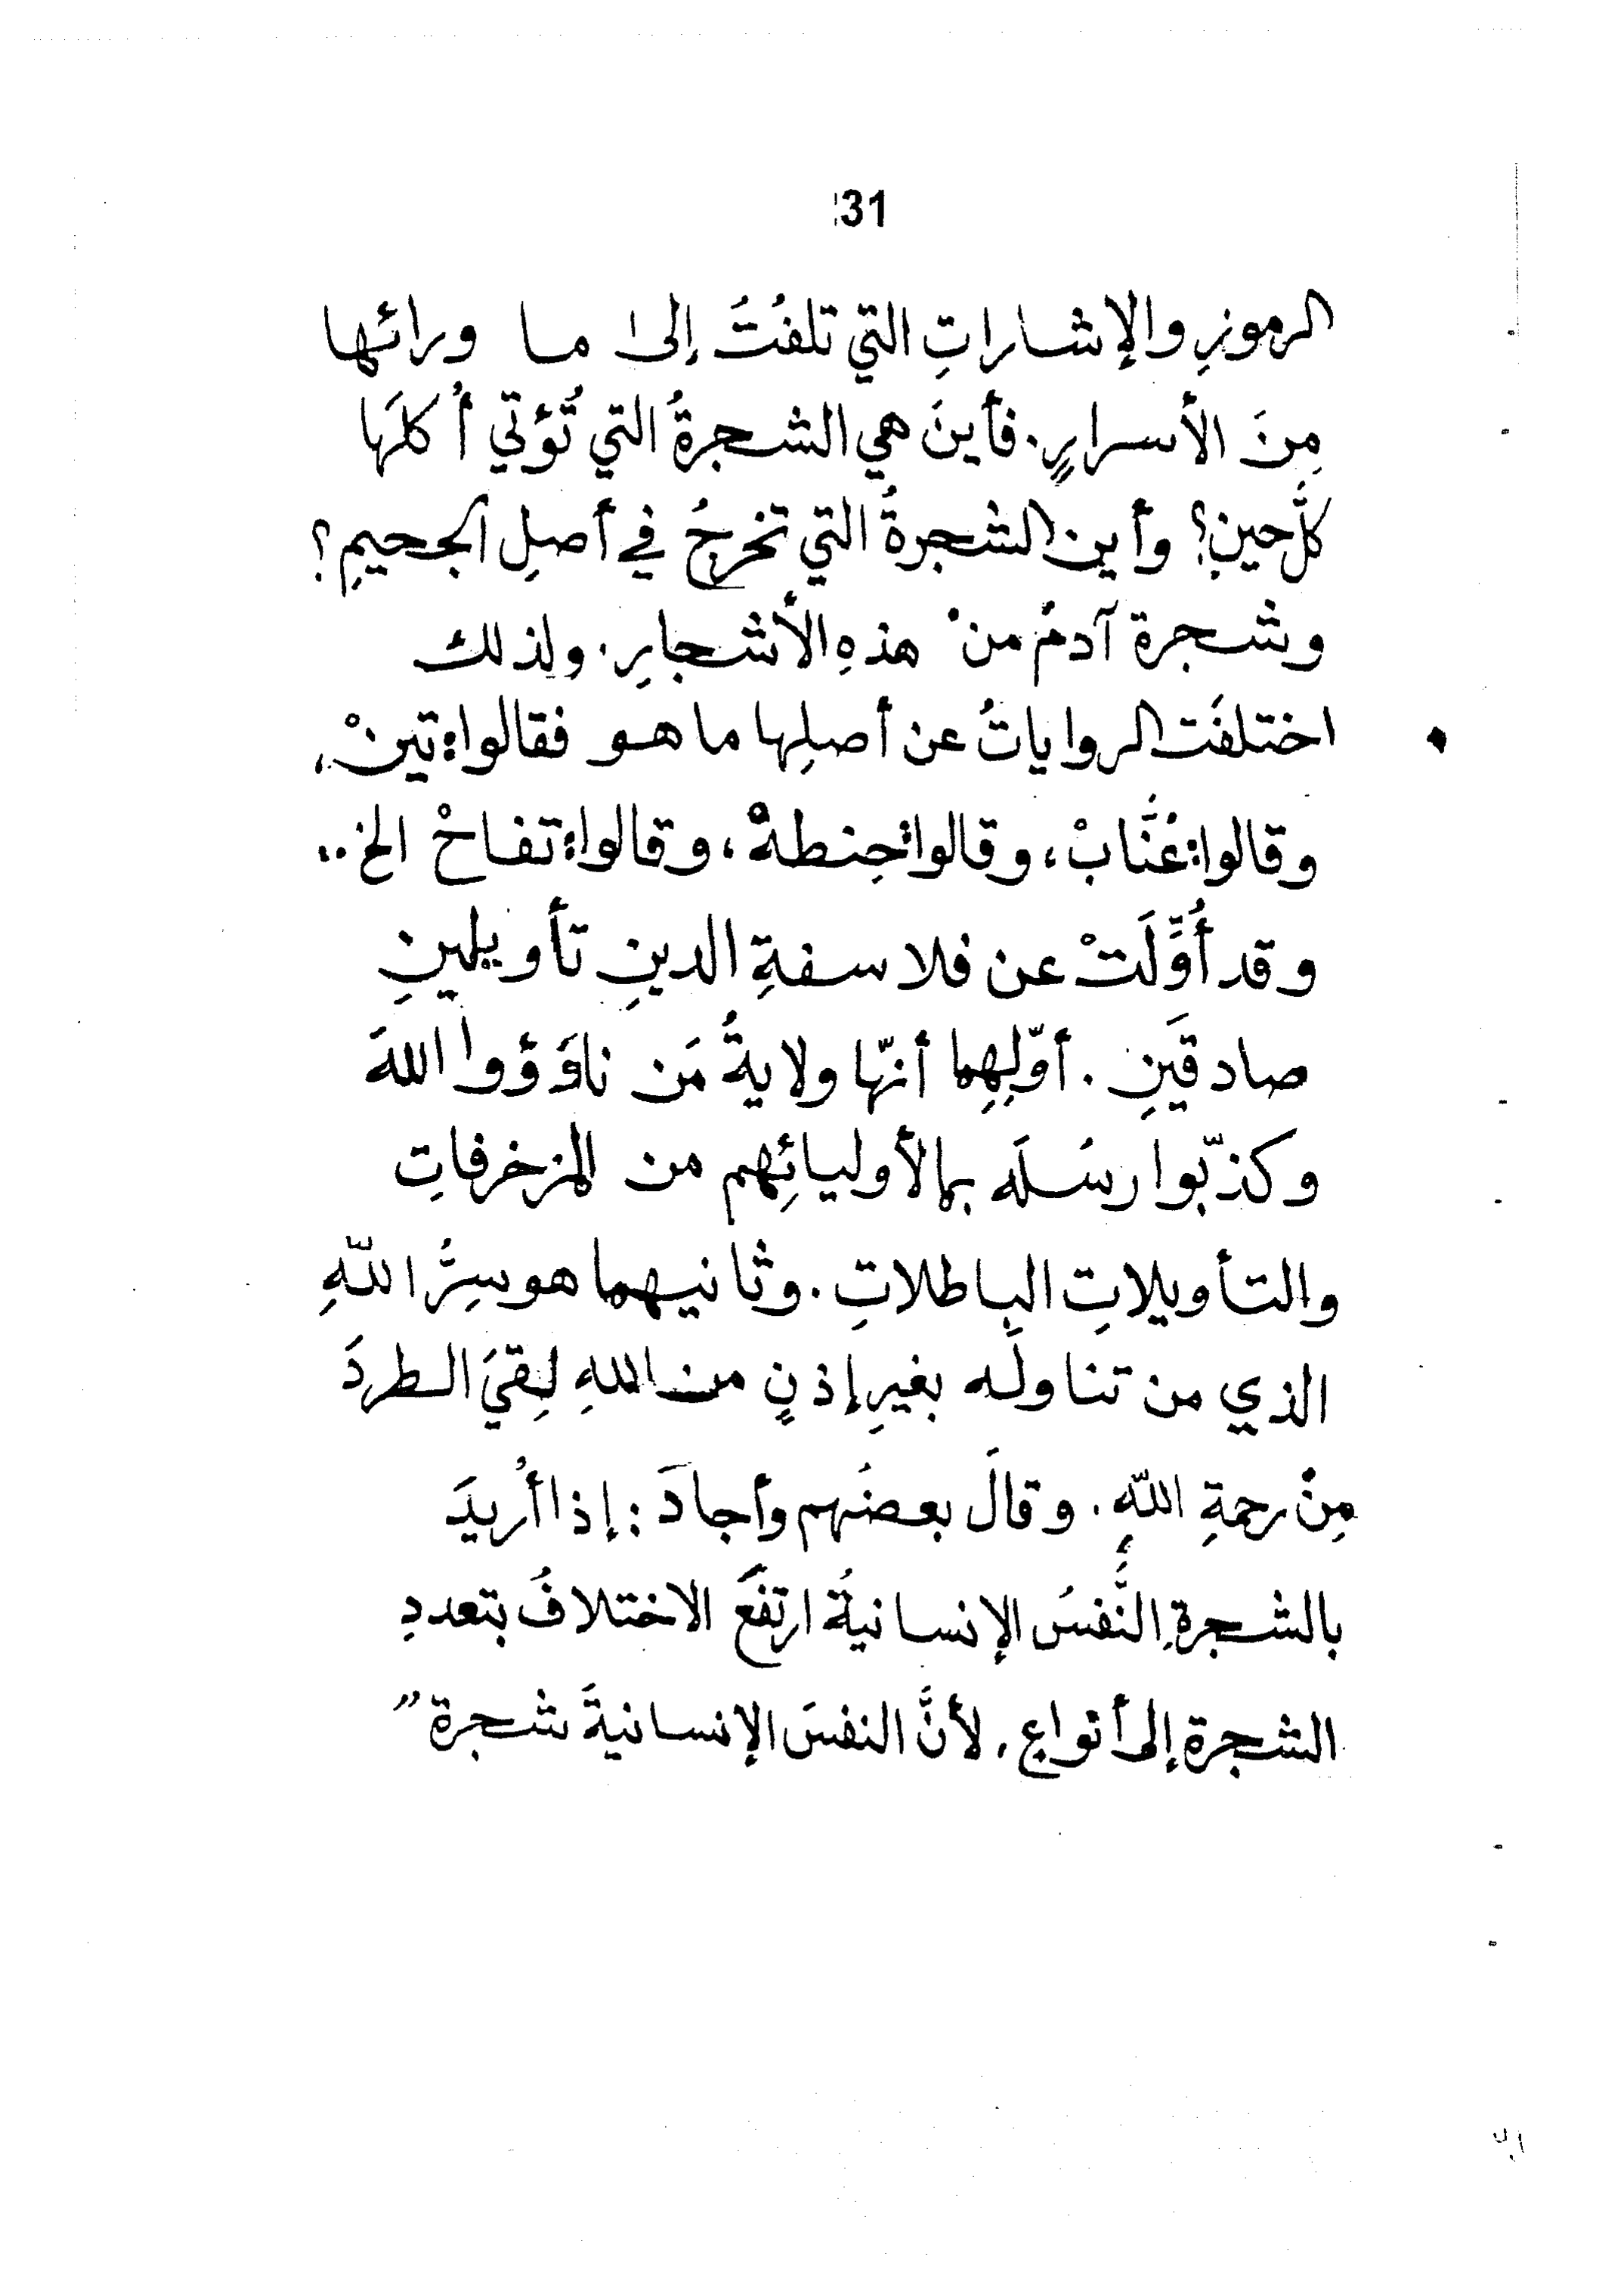 31
الرموزِ والإشاراتِ التي تلفُتُ إلى ما ورائها
مِنَ الأسرارِ. فأينَ هي الشجرةُ التي تُؤتي أُكلَها
كلَّ حينٍ؟ وأين الشجرةُ التي تخرجُ في أصلِ الجحيمِ؟
وشجرة آدمُ من هذهِ الأشجارِ. ولذلك
اختلفَت الرواياتُ عن أصلِها ما هو فقالوا: تينْ،
وقالوا: عُنَّابْ، وقالوا: حِنطهْ، وقالوا: تفاحْ الخ..
وقد أُوِّلَتْ عن فلاسفةِ الدينِ تأويلينِ
صادقَينِ. أوّلِهِما أنّها ولايةُ مَن ناوَؤوا اللهَ
وكذّبوا رسُلَه بمالأوليائِهم من المزخرفاتِ
والتأويلاتِ الباطلاتِ. وثانيهما هو سِرُّ اللّهِ
الذي من تناولَه بغيرِ إذنٍ من اللهِ لِقيَ الطردَ
مِنْ رحمةِ اللّهِ. وقالَ بعضُهم وأجادَ: إذا أُريدَ
بالشجرةِ النَّفسُ الإنسانيةُ ارتفعَ الاختلافُ بتعددِ
الشجرة إلى أنواعٍ، لأنَّ النفسَ الإنسانيةَ شجرة"